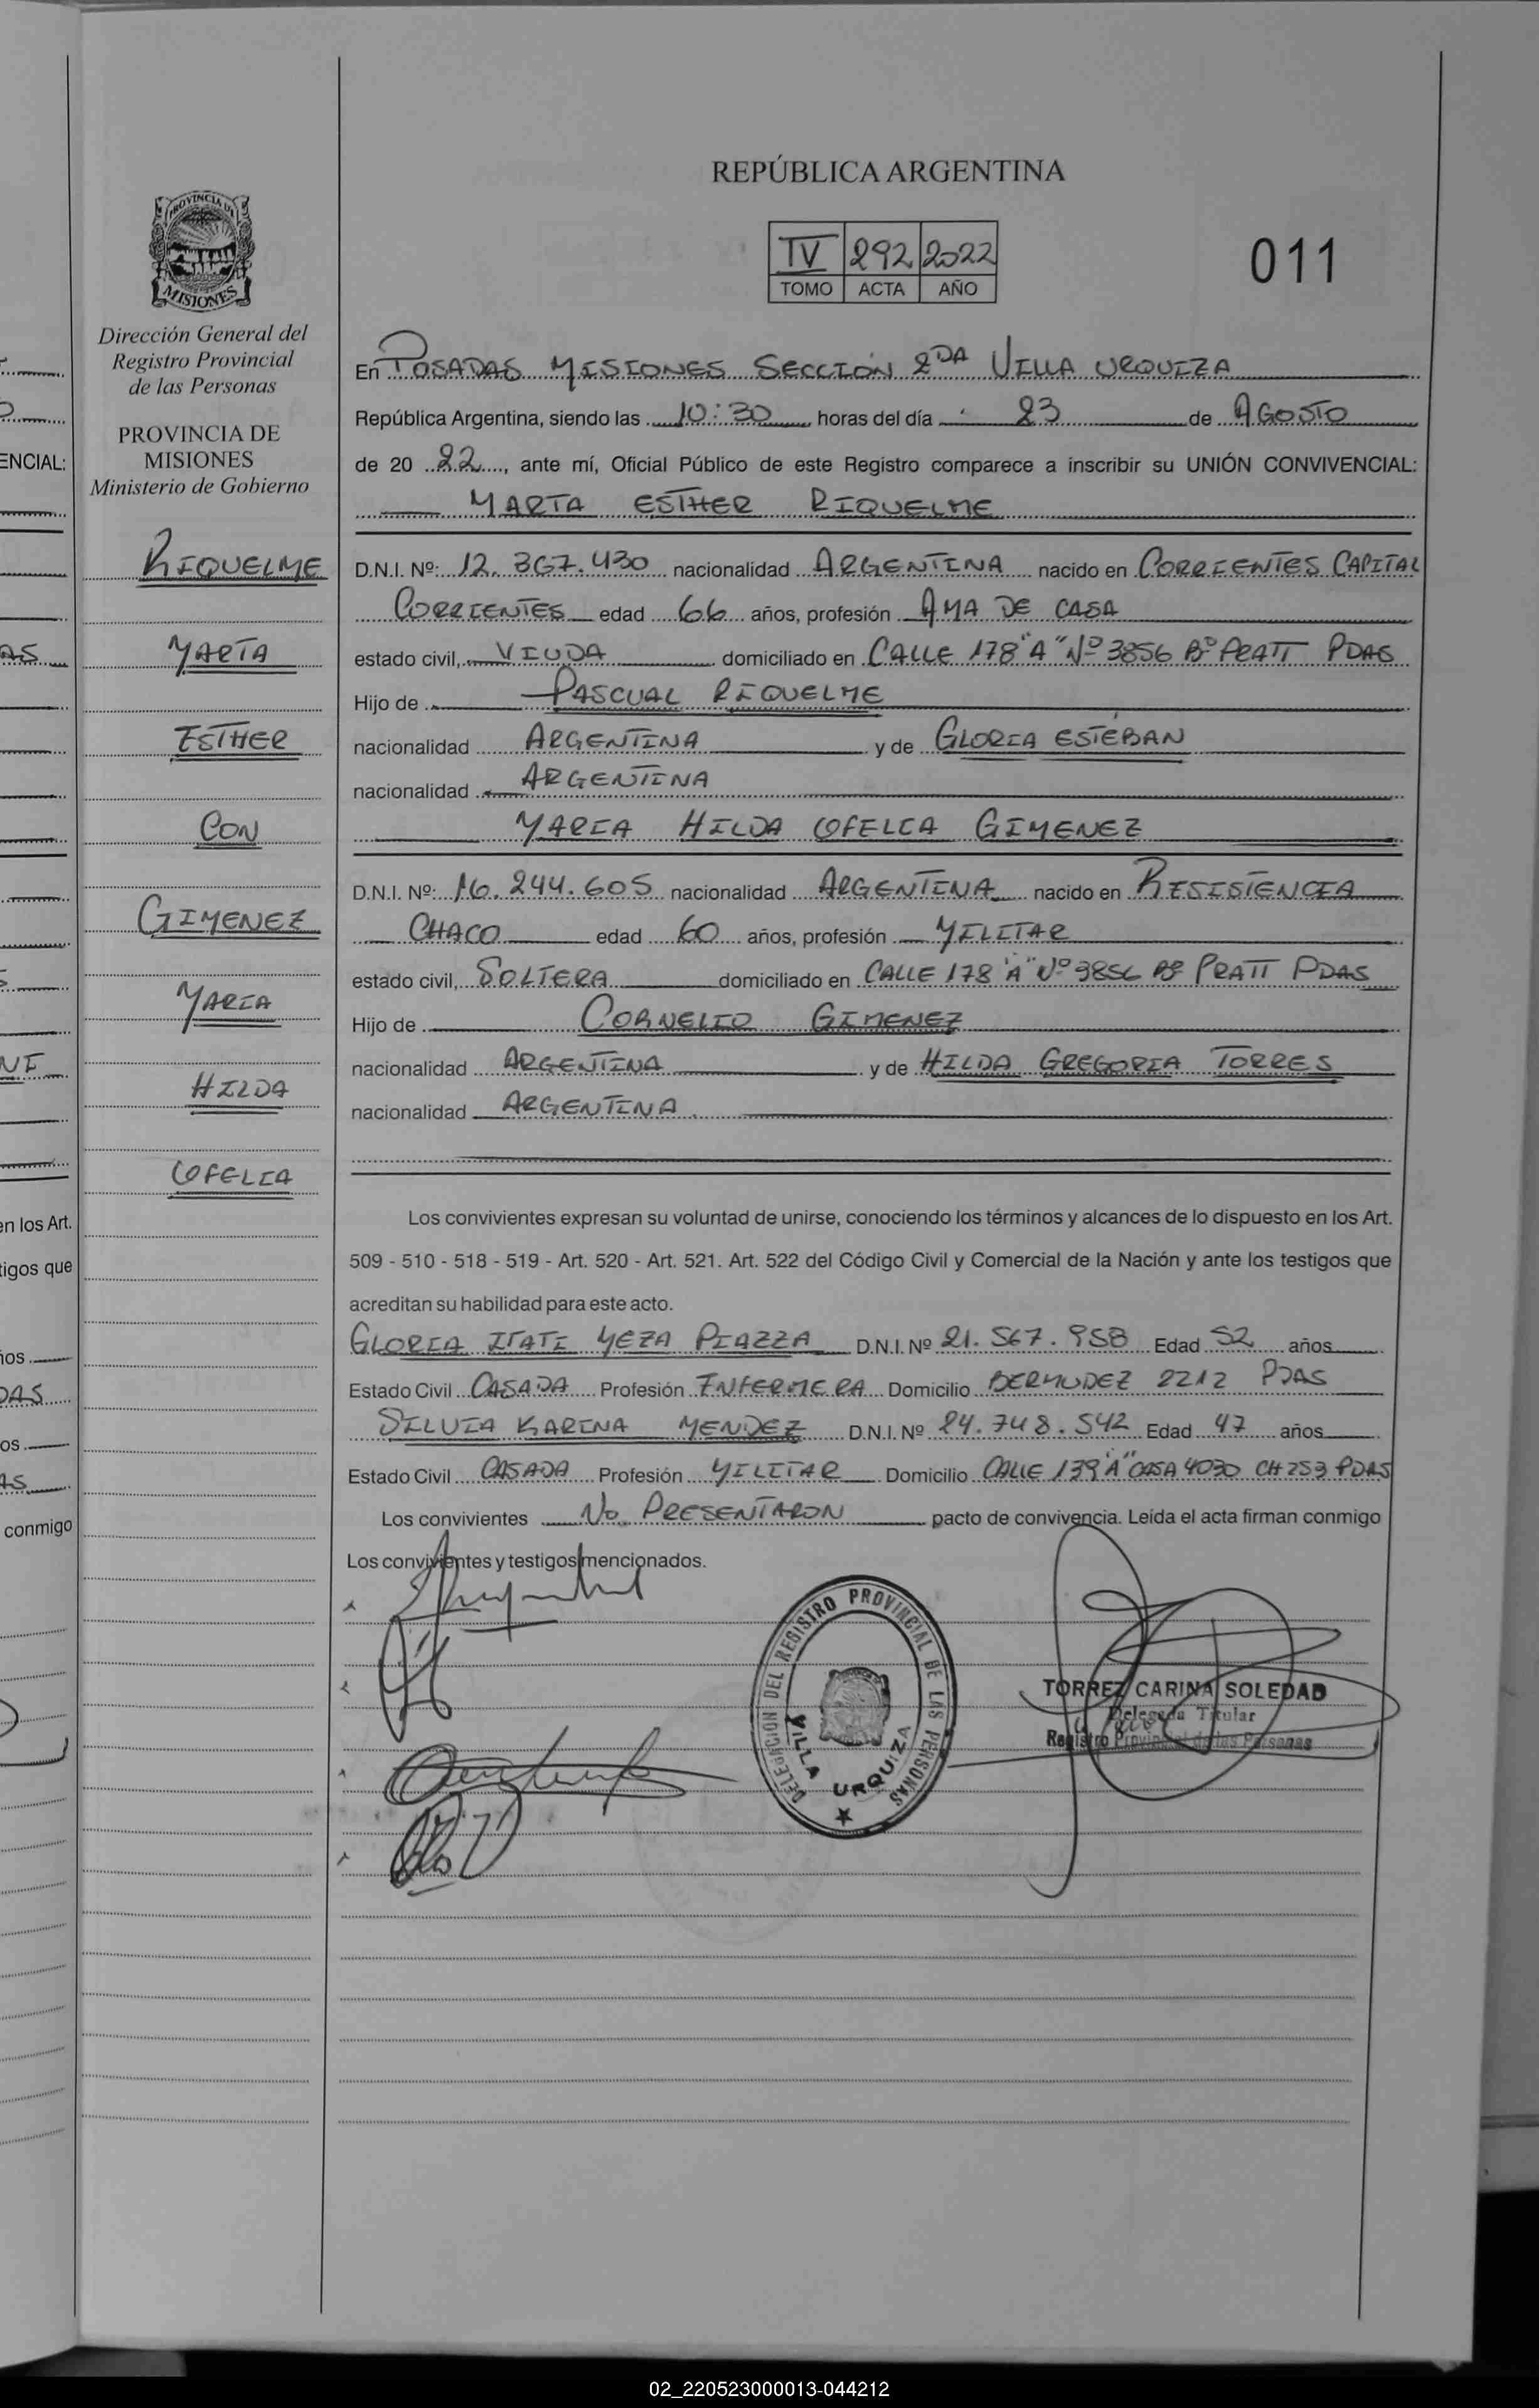 REPÚBLICA ARGENTINA
IV 292 2022
TOMO ACTA AÑO
011
PROVINCIA DE
MISIONES
Dirección General del
Registro Provincial
de las Personas
PROVINCIA DE
MISIONES
Ministerio de Gobierno
RIQUELME
MARTA
ESTHER
CON
GIMENEZ
MARIA
HILDA
OFELIA
En POSADAS MISIONES SECCIÓN 2DA VILLA URQUIZA
República Argentina, siendo las 10:30 horas del día 23 de AGOSTO
de 20 22, ante mí, Oficial Público de este Registro comparece a inscribir su UNIÓN CONVIVENCIAL:
MARTA ESTHER RIQUELME
D.N.I. Nº: 12.367.430 nacionalidad ARGENTINA nacido en CORRIENTES CAPITAL
CORRIENTES edad 66 años, profesión AMA DE CASA
estado civil, VIUDA domiciliado en CALLE 178 "A" Nº 3856 Bº PRATT PDAS
Hijo de PASCUAL RIQUELME
nacionalidad ARGENTINA y de GLORIA ESTEBAN
nacionalidad ARGENTINA
MARIA HILDA OFELIA GIMENEZ
D.N.I. Nº: 16.244.605 nacionalidad ARGENTINA nacido en RESISTENCIA
CHACO edad 60 años, profesión MILITAR
estado civil, SOLTERA domiciliado en CALLE 178 "A" Nº 3856 Bº PRATT PDAS
Hijo de CORNELIO GIMENEZ
nacionalidad ARGENTINA y de HILDA GREGORIA TORRES
nacionalidad ARGENTINA
Los convivientes expresan su voluntad de unirse, conociendo los términos y alcances de lo dispuesto en los Art.
509 - 510 - 518 - 519 - Art. 520 - Art. 521. Art. 522 del Código Civil y Comercial de la Nación y ante los testigos que
acreditan su habilidad para este acto.
GLORIA ITATI MEZA PIAZZA D.N.I. Nº 21.567.958 Edad 52 años
Estado Civil CASADA Profesión ENFERMERA Domicilio BERMUDEZ 2212 PDAS
SILVIA KARINA MENDEZ D.N.I. Nº 24.748.542 Edad 47 años
Estado Civil CASADA Profesión MILITAR Domicilio CALLE 139 "A" CASA 4030 CH 253 PDAS
Los convivientes No PRESENTARON pacto de convivencia. Leída el acta firman conmigo
Los convivientes y testigos mencionados.
DELEGACION DEL REGISTRO PROVINCIAL DE LAS PERSONAS
VILLA URQUIZA
TORREZ CARINA SOLEDAD
Delegada Titular
Registro Provincial de las Personas
ENCIAL:
AS
en los Art.
tigos que
DAS
os
AS
conmigo
02_220523000013-044212